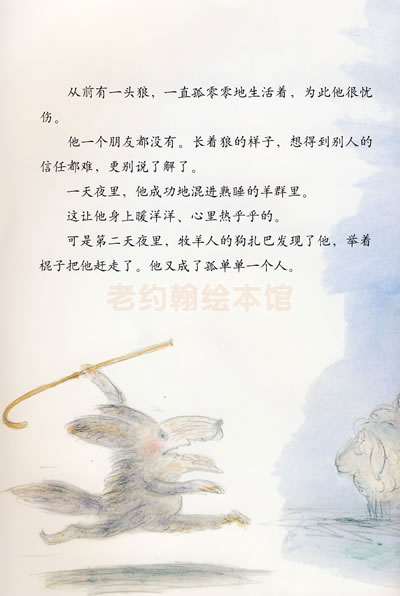 从前有一头狼，一直孤零零地生活着，为此他很忧
伤。
他一个朋友都没有。长着狼的样子，想得到别人的
信任都难，更别说了解了。
一天夜里，他成功地混进熟睡的羊群里。
这让他身上暖洋洋、心里热乎乎的。
可是第二天夜里，牧羊人的狗扎巴发现了他，举着
棍子把他赶走了。他又成了孤单单一个人。
老约翰绘本馆